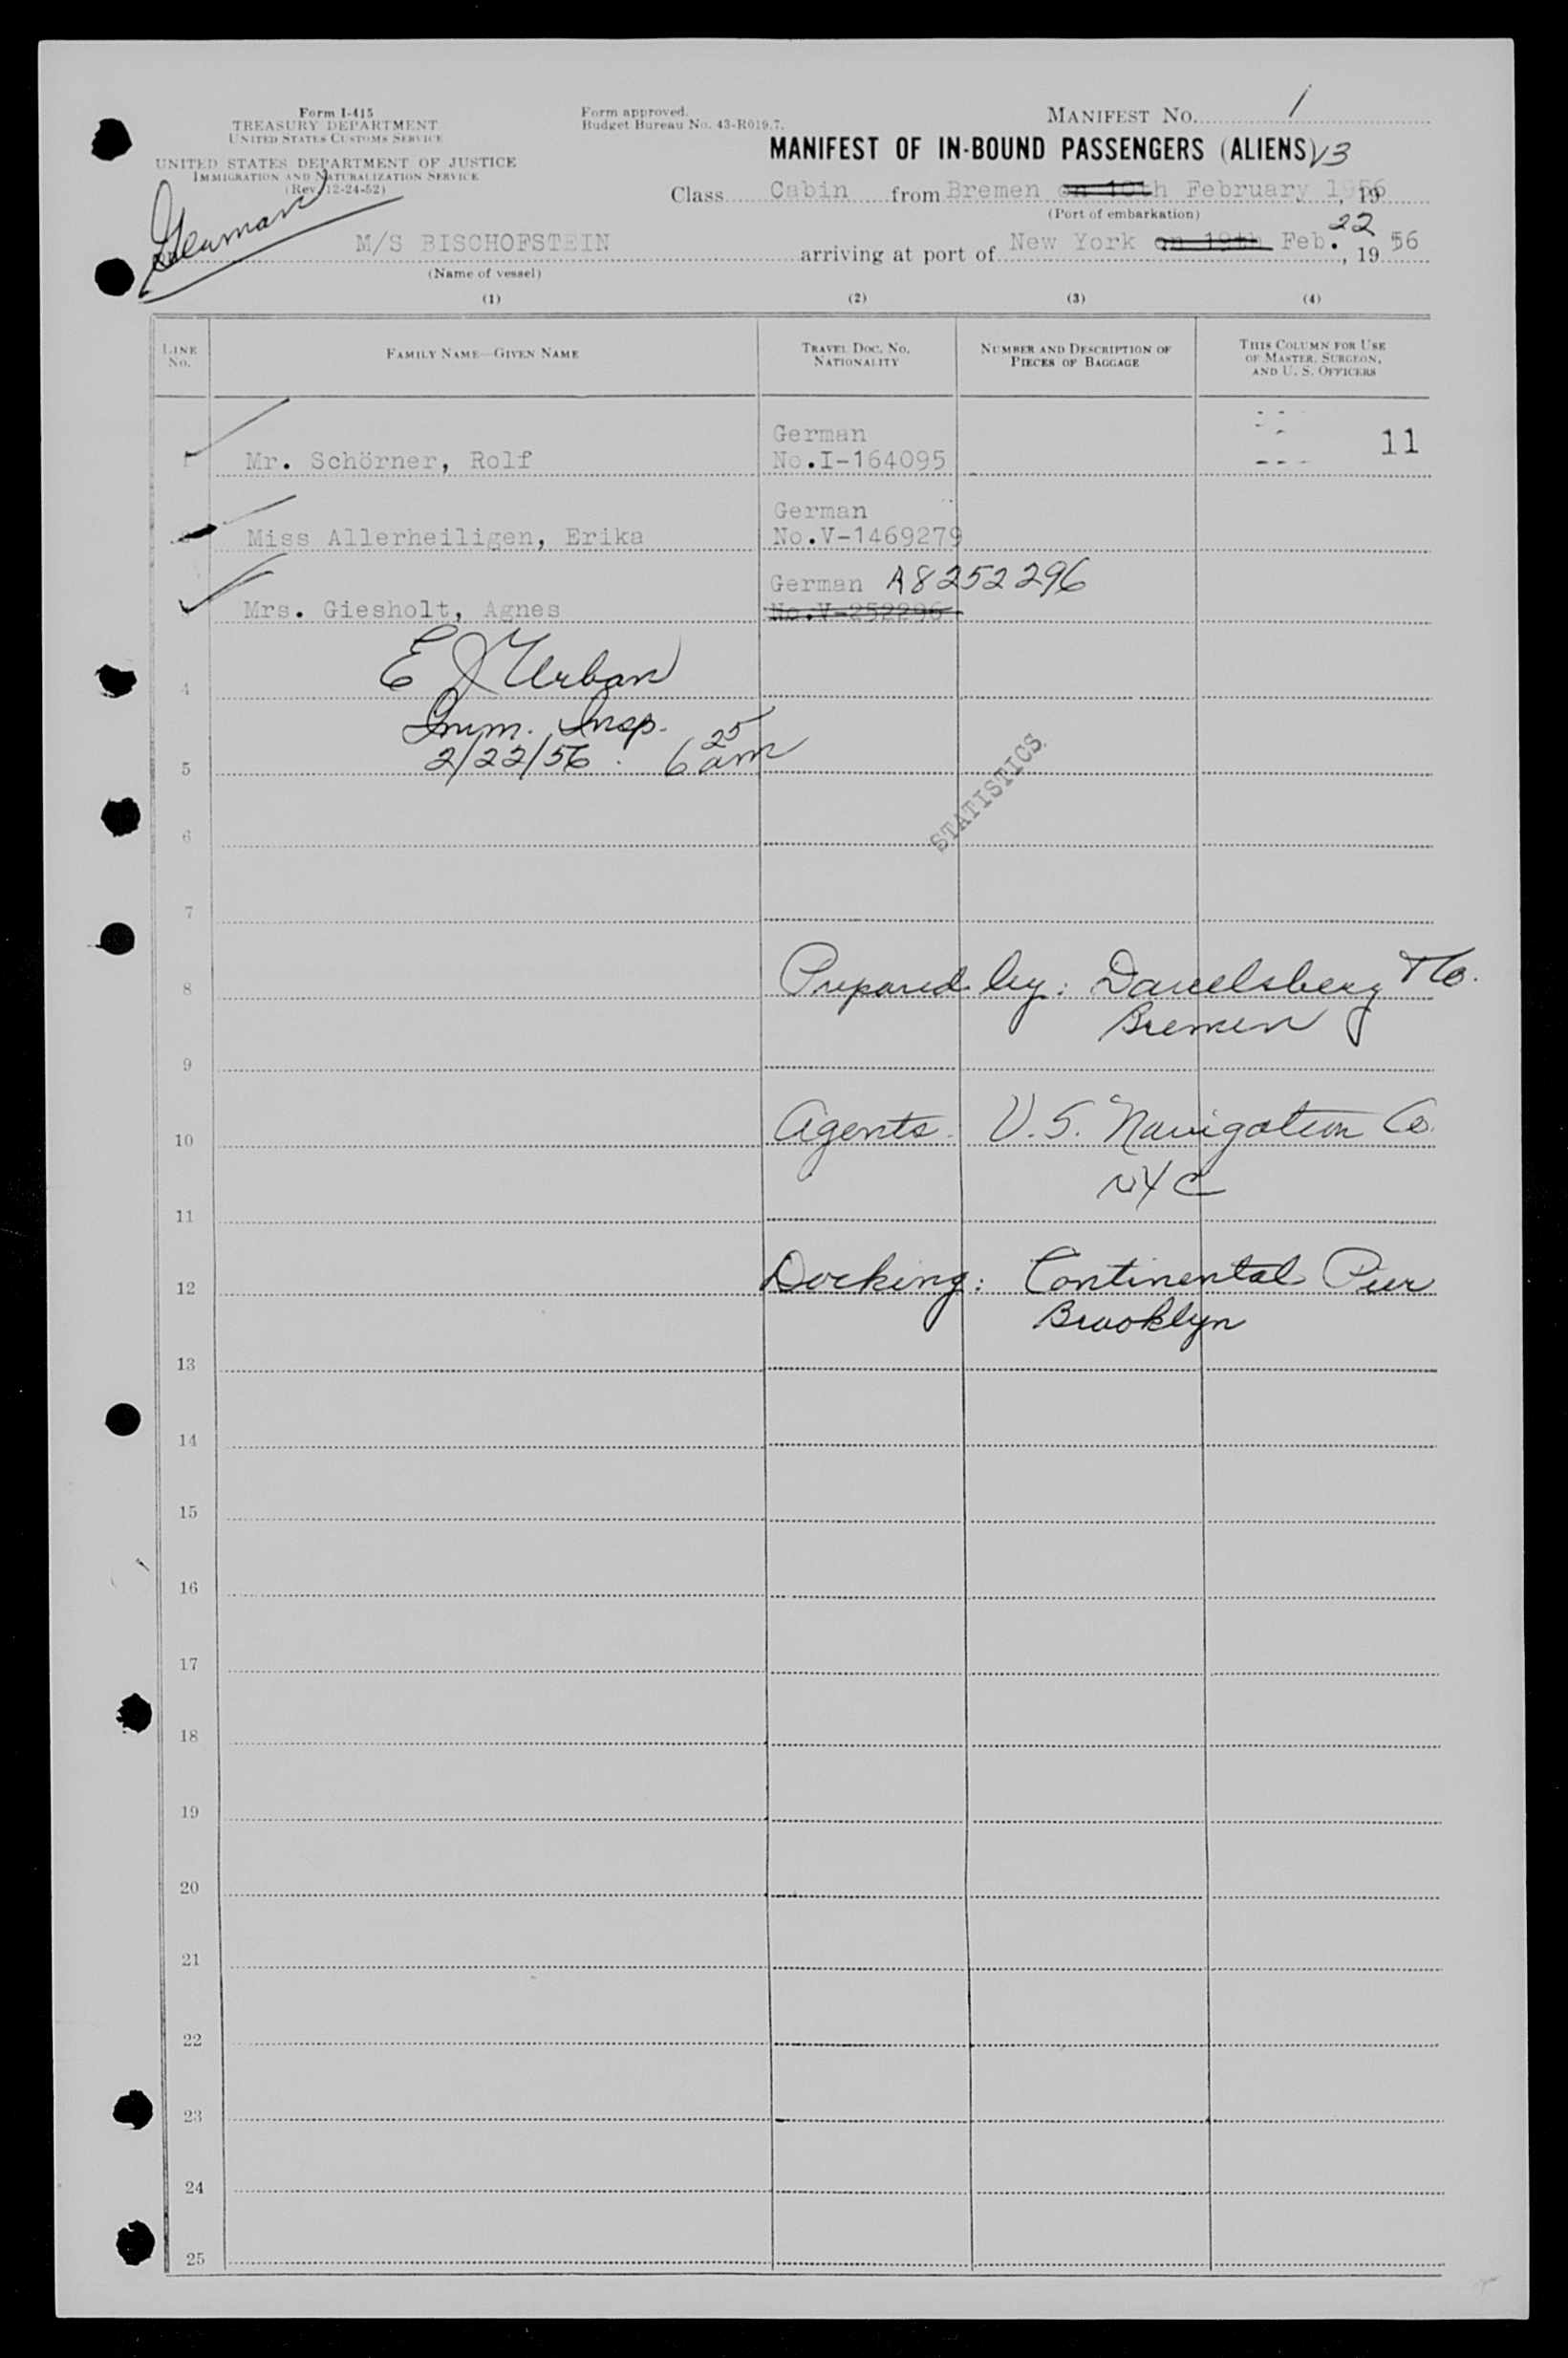 Form I-415
TREASURY DEPARTMENT
UNITED STATES CUSTOMS SERVICE
UNITED STATES DEPARTMENT OF JUSTICE
IMMIGRATION AND NATURALIZATION SERVICE
(Rev. 12-24-52)
German
Form approved.
Budget Bureau No. 43-R019.7.
MANIFEST NO. 1
MANIFEST OF IN-BOUND PASSENGERS (ALIENS) V3
Class Cabin from Bremen on 10th February 1956, 19
(Port of embarkation)
M/S BISCHOFSTEIN arriving at port of New York on 19th Feb. 22, 1956
(Name of vessel)
(1) (2) (3) (4)
LINE No. FAMILY NAME—GIVEN NAME TRAVEL DOC. NO. NATIONALITY NUMBER AND DESCRIPTION OF PIECES OF BAGGAGE THIS COLUMN FOR USE OF MASTER, SURGEON, AND U. S. OFFICERS
German
1 Mr. Schörner, Rolf No.I-164095 11
German
Miss Allerheiligen, Erika No.V-1469279
German A8252296
Mrs. Giesholt, Agnes No.V-252296
4 E J Urban
Imm. Insp.
5 2/22/56. 6 25 am
STATISTICS
6
7
8 Prepared by: & Co.
Bremen
9
10 Agents. U.S. Navigation Co.
NYC
11
12 Docking: Continental Pier
Brooklyn
13
14
15
16
17
18
19
20
21
22
23
24
25